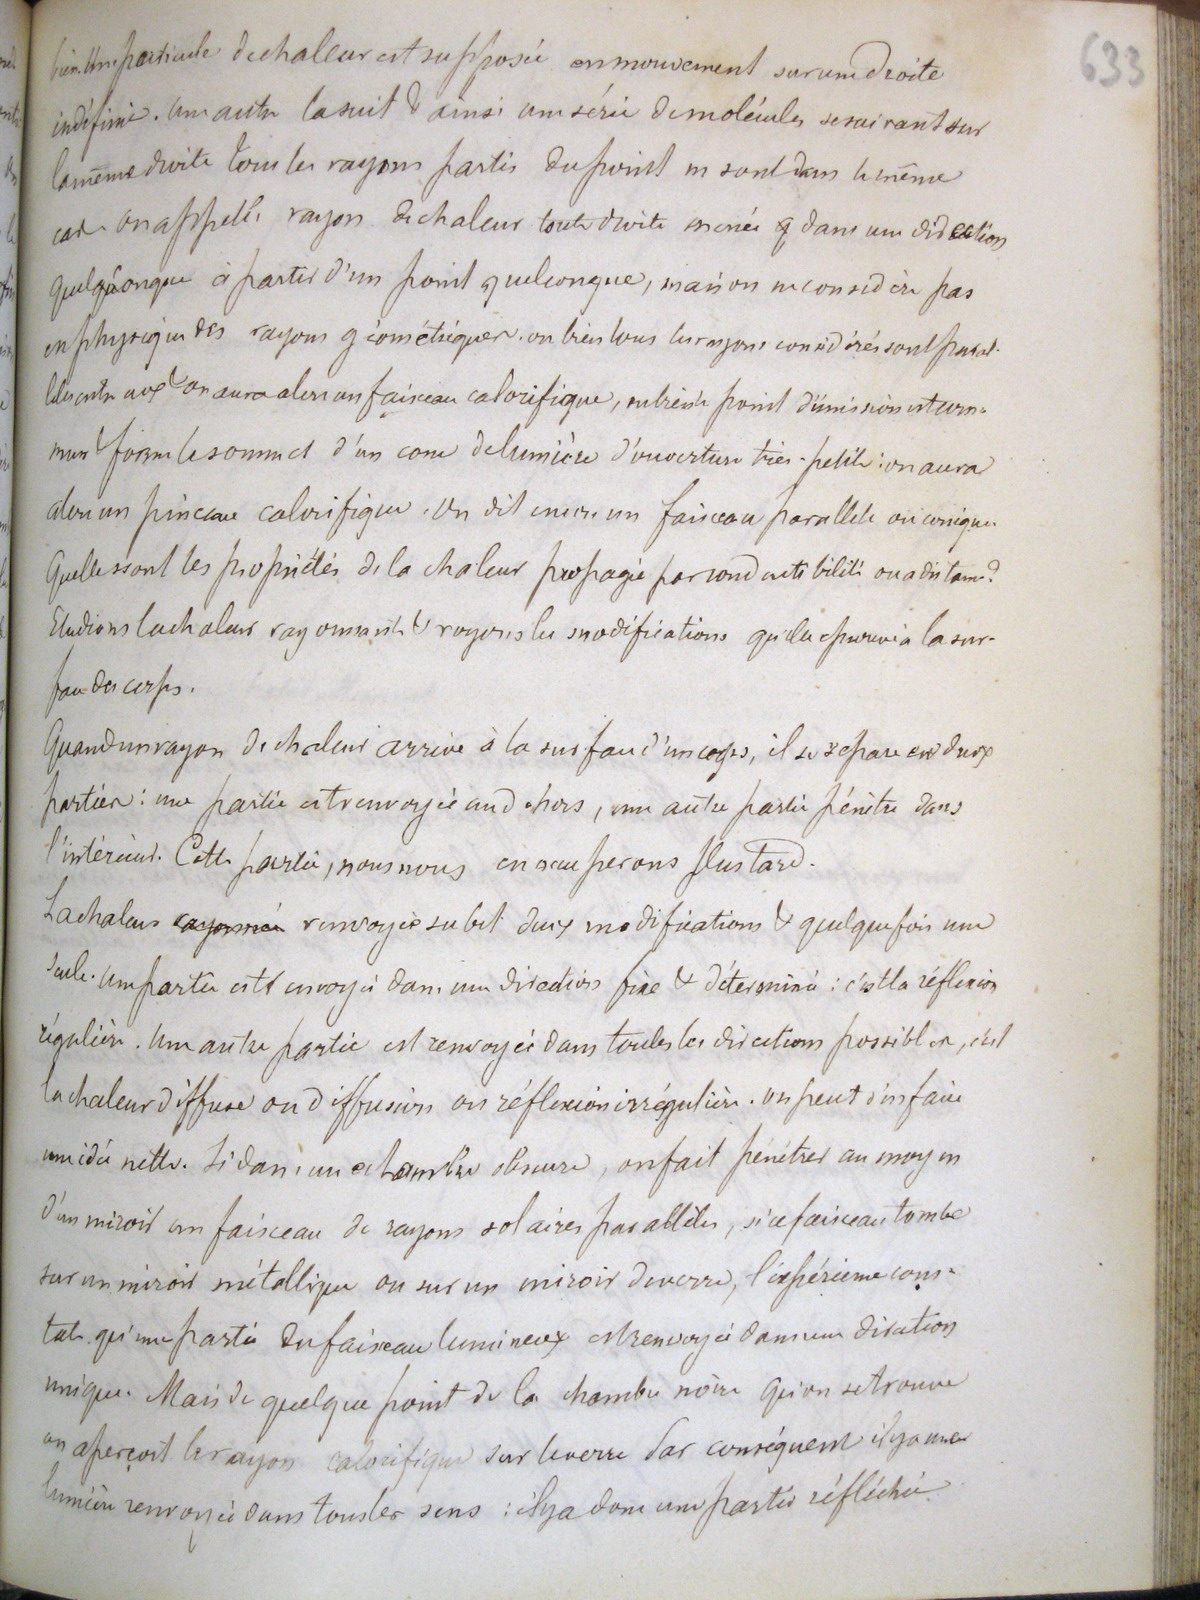 633
bien. Une particule de chaleur est supposée en mouvement sur une droite
indéfinie. Une autre la suit & ainsi une série de molécules se suivant sur
la même droite tous les rayons partis du point m sont dans le même
cas. On appelle rayon de chaleur toute droite menée q dans une direction
quelquonque à partir d'un point quelconque, mais on ne considère pas
en physique des rayons géométriques. ou bien tous les rayons considérés sont paral-
lèles entre eux & on aura alors un faisceau calorifique, ou bien le point d'émission est com-
mun & forme le sommet d'un cone de lumière d'ouverture très-petite : on aura
alors un pinceau calorifique. On dit encore un faisceau parallèle ou conique.
Quelles sont les propriétés de la chaleur propagée par conductibilité ou à distance?
Etudions la chaleur rayonnante & voyons les modifications qu'elle éprouve à la sur-
face des corps.
Quand un rayon de chaleur arrive à la surface d'un corps, il se sépare en deux
parties : une partie est renvoyée au dehors, une autre partie pénètre dans
l'intérieur. Cette partie, nous nous en occuperons plus tard.
La chaleur rayonnée renvoyée subit deux modifications & quelquefois une
seule. Une partie est envoyée dans une direction fixe & déterminée : c'est la réflexion
régulière. Une autre partie est renvoyée dans toutes les directions possibles, c'est
la chaleur diffuse ou diffusion ou réflexion irrégulière. On peut s'en faire
une idée nette. Si dans une chambre obscure, on fait pénétrer au moyen
d'un miroir un faisceau de rayons solaires parallèles, si ce faisceau tombe
sur un miroir métallique ou sur un miroir de verre, l'expérience cons-
tate qu'une partie du faisceau lumineux est renvoyée dans une direction
unique. Mais de quelque point de la chambre noire qu'on se trouve
on aperçoit le rayon calorifique sur le verre Par conséquent il y a une
lumière renvoyée dans tous les sens : il y a donc une partie réfléchie